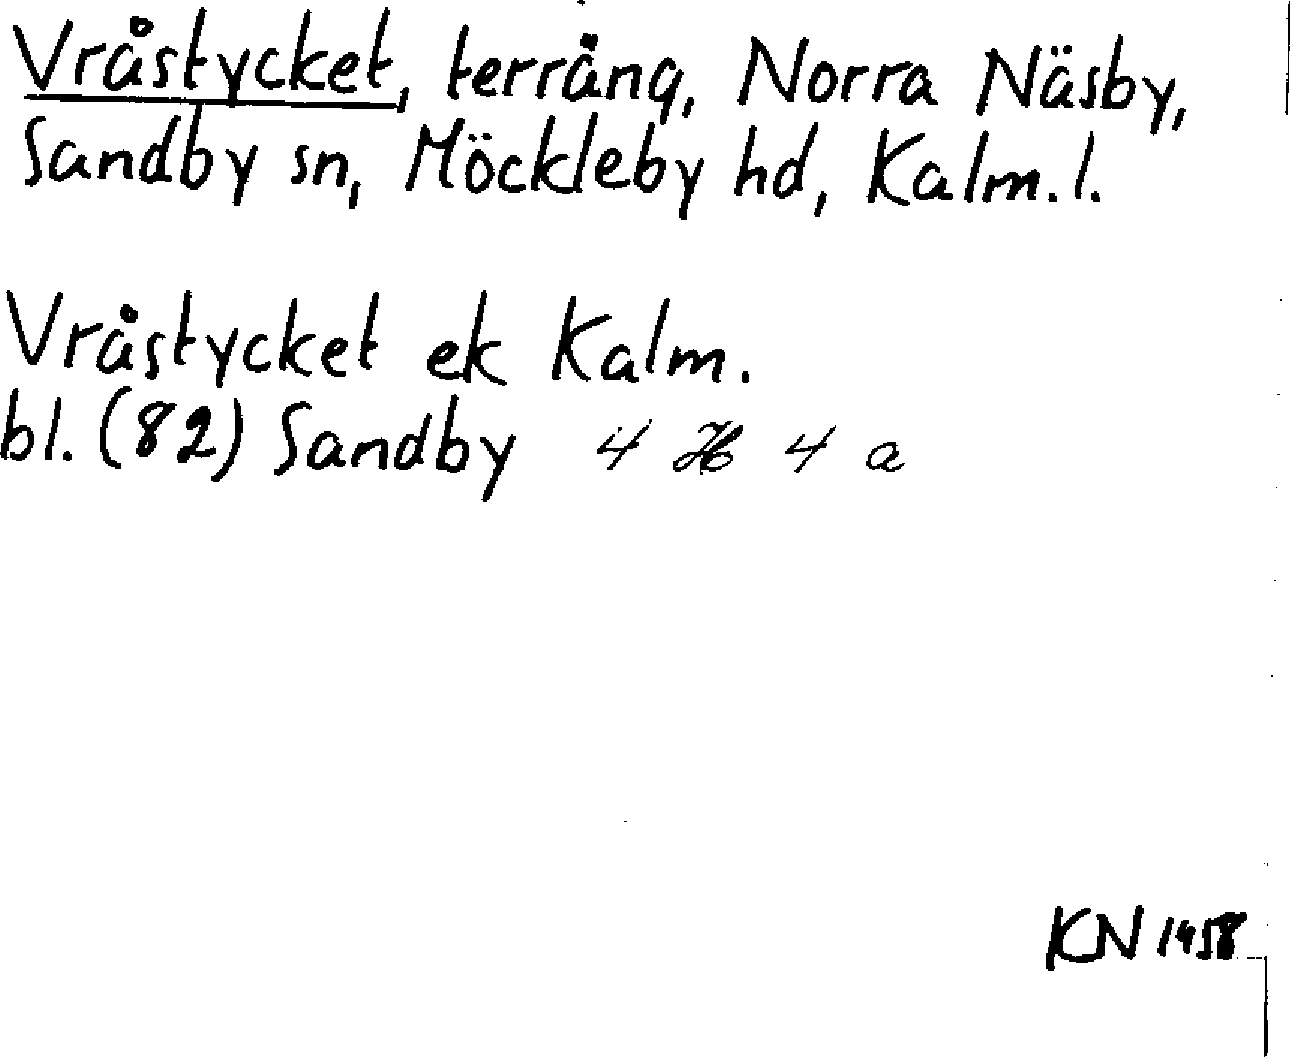 Vråstycket, terräng, Norra Näsby,
Sandby sn, Möckleby hd, Kalm. l.
Vråstycket ek Kalm.
bl. (82) Sandby 4 H 4 a
KN 1958